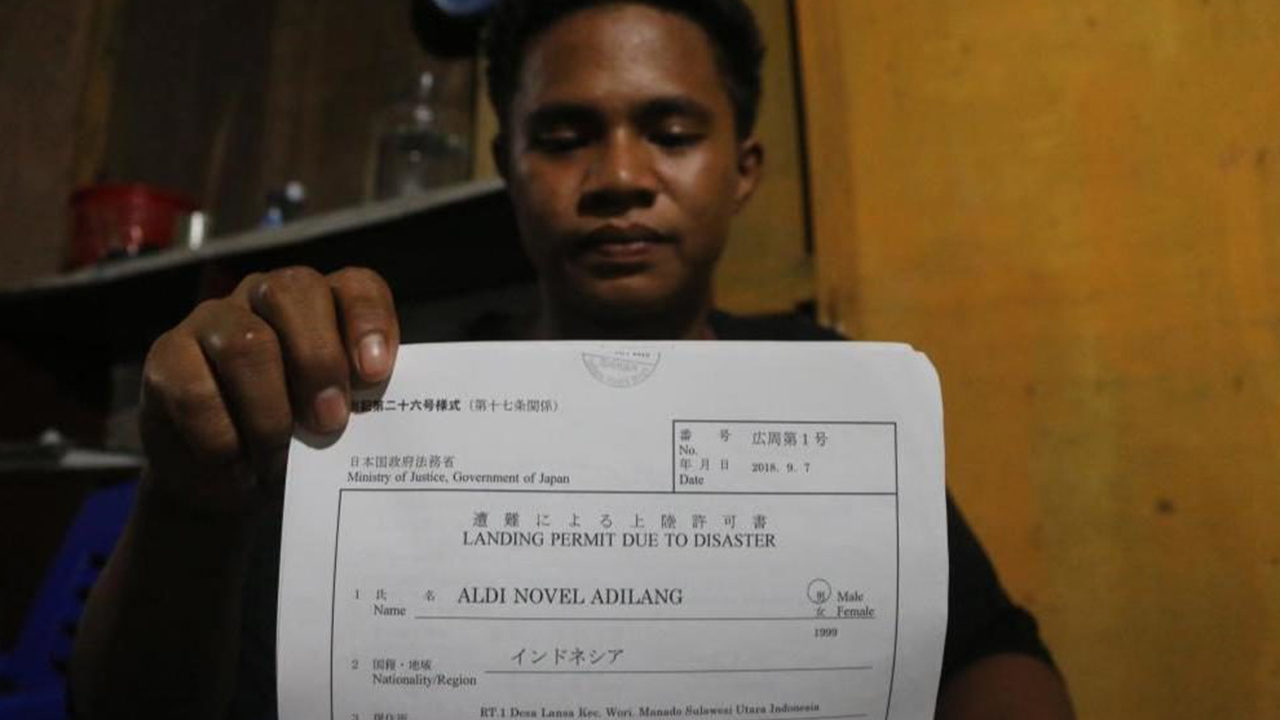 第二十六号様式（第十七条関係）
番 号 広周第1号
No.
年 月 日 2018. 9. 7
Date
日本国政府法務省
Ministry of Justice, Government of Japan
遭 難 に よ る 上 陸 許 可 書
LANDING PERMIT DUE TO DISASTER
1 氏 名 ALDI NOVEL ADILANG 男 Male
Name 女 Female
1999
2 国籍・地域 インドネシア
Nationality/Region
3 RT.1 Desa Lansa Kec. Wori. Manado Sulawesi Utara Indonesia